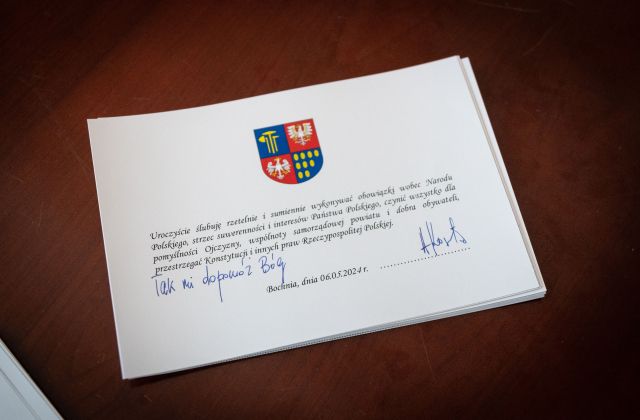 Uroczyście ślubuję rzetelnie i sumiennie wykonywać obowiązki wobec Narodu
Polskiego, strzec suwerenności i interesów Państwa Polskiego, czynić wszystko dla
pomyślności Ojczyzny, wspólnoty samorządowej powiatu i dobra obywateli,
przestrzegać Konstytucji i innych praw Rzeczypospolitej Polskiej.
Tak mi dopomóż Bóg
Bochnia, dnia 06.05.2024 r.